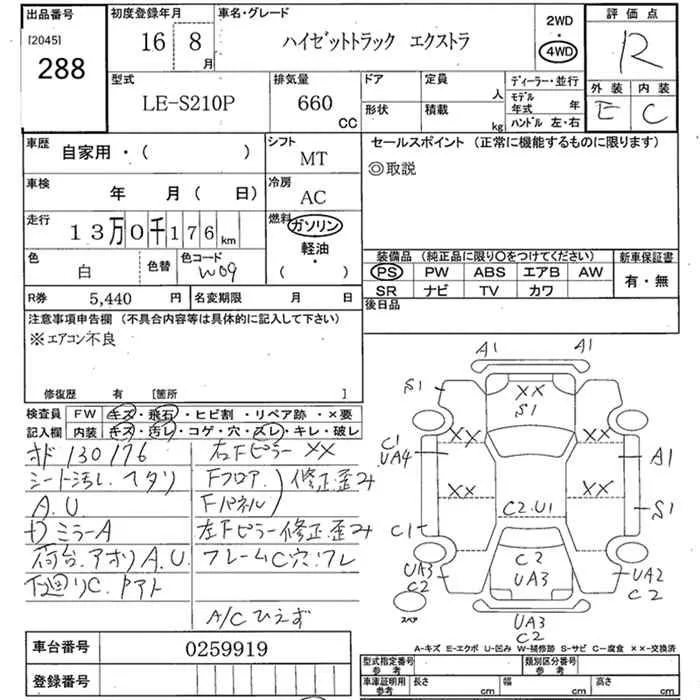 出品番号
[2045]
288
初度登録年月
16 8月
車名・グレード
ハイゼットトラック エクストラ
2WD
・
4WD
評価点
R
外装 内装
E C
型式
LE-S210P
排気量
660
CC
ドア
形状
定員
人
積載
kg
ディーラー・並行
モデル年式 年
ハンドル 左・右
車歴
自家用・( )
シフト
MT
セールスポイント (正常に機能するものに限ります)
◎取説
車検
年 月( 日)
冷房
AC
走行
13万0千176km
燃料
ガソリン
軽油・
( )
色
白
色替
色コード
W09
装備品 (純正品に限り○をつけてください)
PS PW ABS エアB AW
SR ナビ TV カワ
新車保証書
有・無
R券 5,440 円
名変期限 月 日
後日品
注意事項申告欄 (不具合内容等は具体的に記入して下さい)
※エアコン不良
修復歴 有 [箇所 ]
検査員
記入欄
FW キズ・飛石・ヒビ割・リペア跡・×要
内装 キズ・汚レ・コゲ・穴・スレ・キレ・破レ
オド130176
シート汚レ、ヘタリ
A.U.
ミラーA
荷台.アオリA.U.
下廻リC.
右下ピラー××
Fフロア
Fパネル
修正歪み
左下ピラー修正歪み
フレームC穴.
A/Cひえず
A1
A1
S1
××
S1
S1
C1
UA4
××
××
A1
××
××
S1
C2.U1
C1
UA3
C2
C2
UA3
UA2
C2
UA3
C2
スペア
A-キズ E-エクボ U-凹み W-補修跡 S-サビ C-腐食 ××-交換済
車台番号
0259919
登録番号
型式指定番号
参考
類別区分番号
参考
車庫証明用
参考
長さ cm
幅 cm
高さ cm